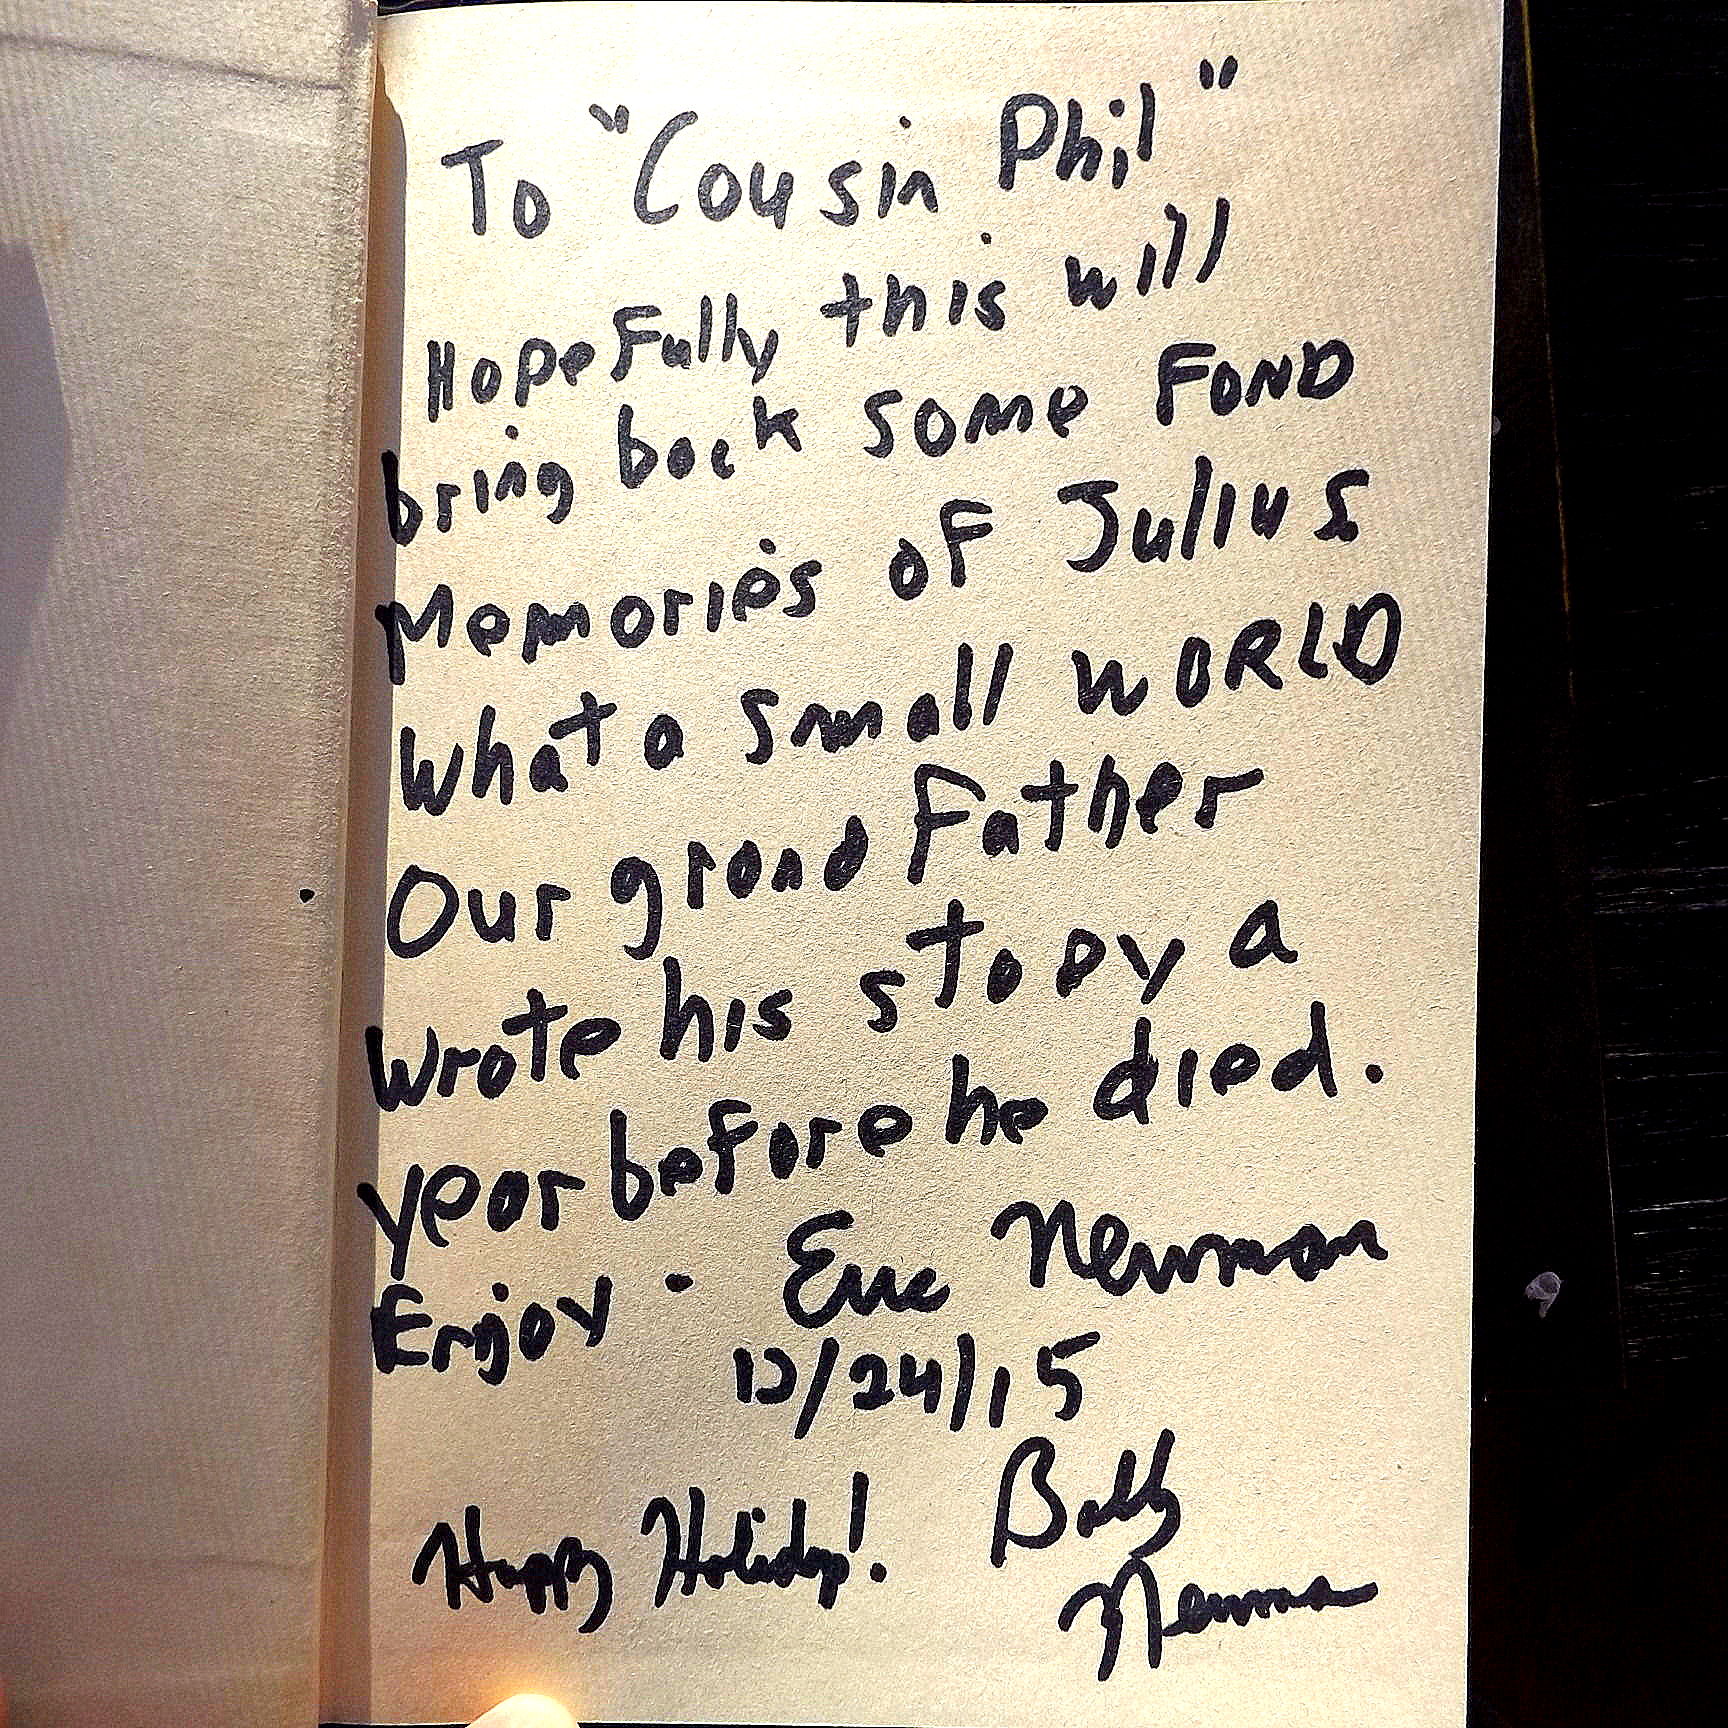 To "Cousin Phil"
Hopefully this will
bring back some FOND
Memories of Julius
What a small WORLD
Our grandfather
wrote his story a
year before he died.
Enjoy - Eric Newman
12/24/15
Happy Holidays! Bobby
Newman